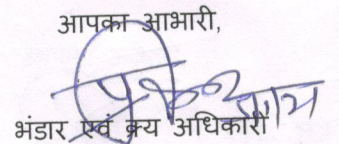 आपका आभारी,
भंडार एवं क्रय अधिकारी